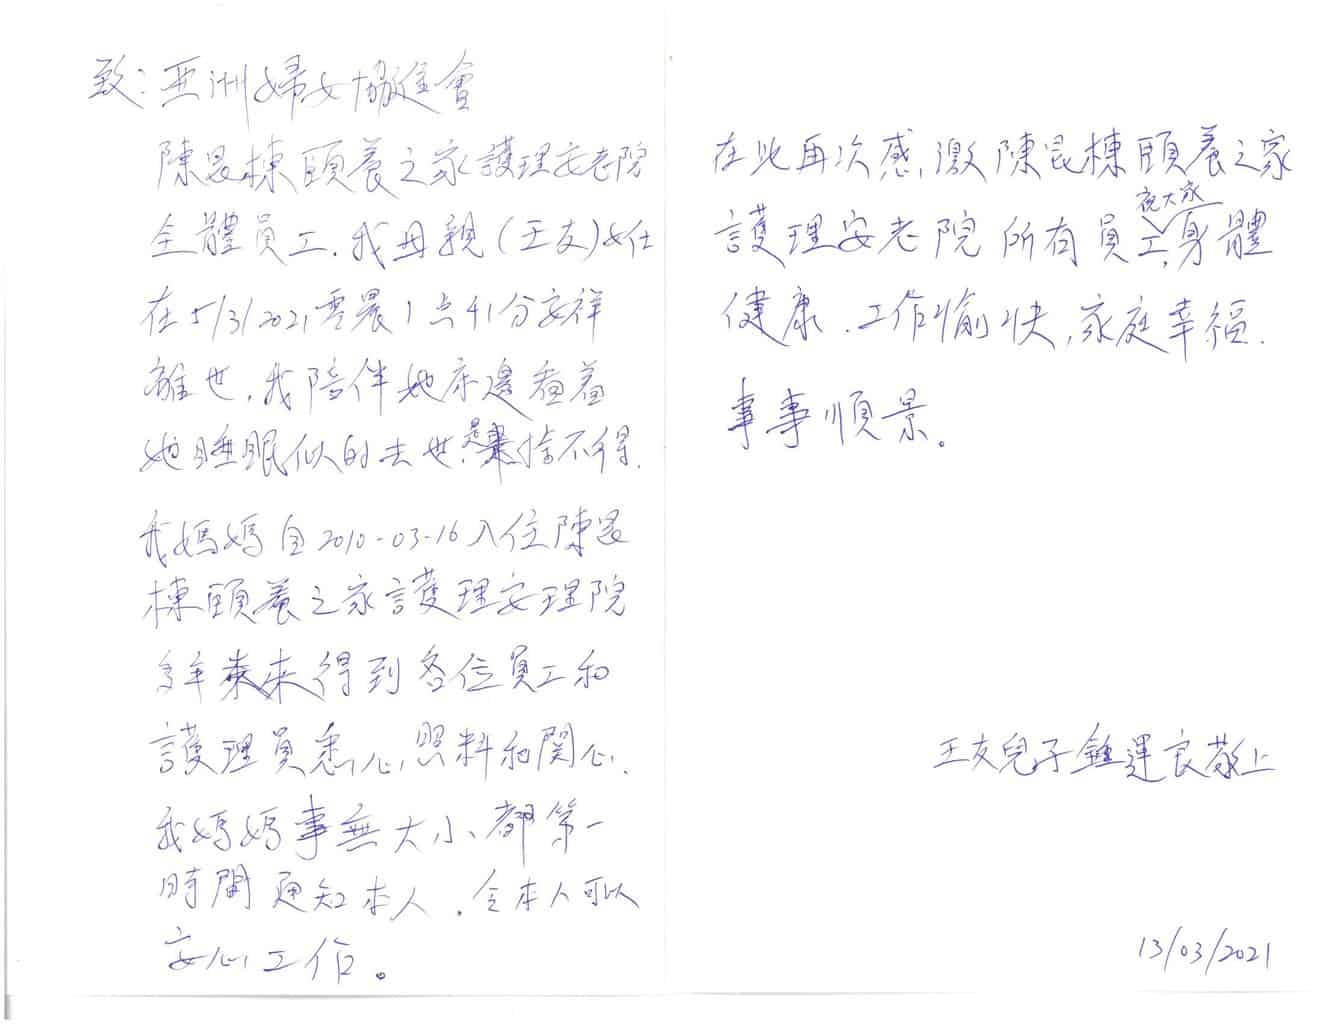 致：亞洲婦女協進會
陳昆棟頤養之家護理安老院
全體員工．我母親（王友）女仕
在5/3/2021零晨1点41分安祥
離世，我陪伴她床邊看着
她睡眠似的去世．是捨不得．
我媽媽自2010-03-16入住陳昆
棟頤養之家護理安理院
多年來得到各位員工和
護理員悉心照料和關心．
我媽媽事無大小都第一
時間通知本人．令本人可以
安心工作。
在此再次感激陳昆棟頤養之家
護理安老院所有員工，祝大家身體
健康．工作愉快，家庭幸福．
事事順景。
王友兒子鍾運良敬上
13/03/2021